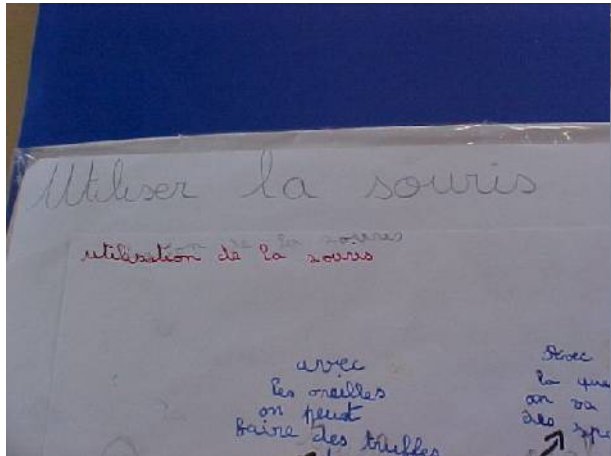 Utiliser la souris
on de la souris
utilisation de la souris
avec
les oreilles
on peut
faire des truffes
Avec
la que
on va
des